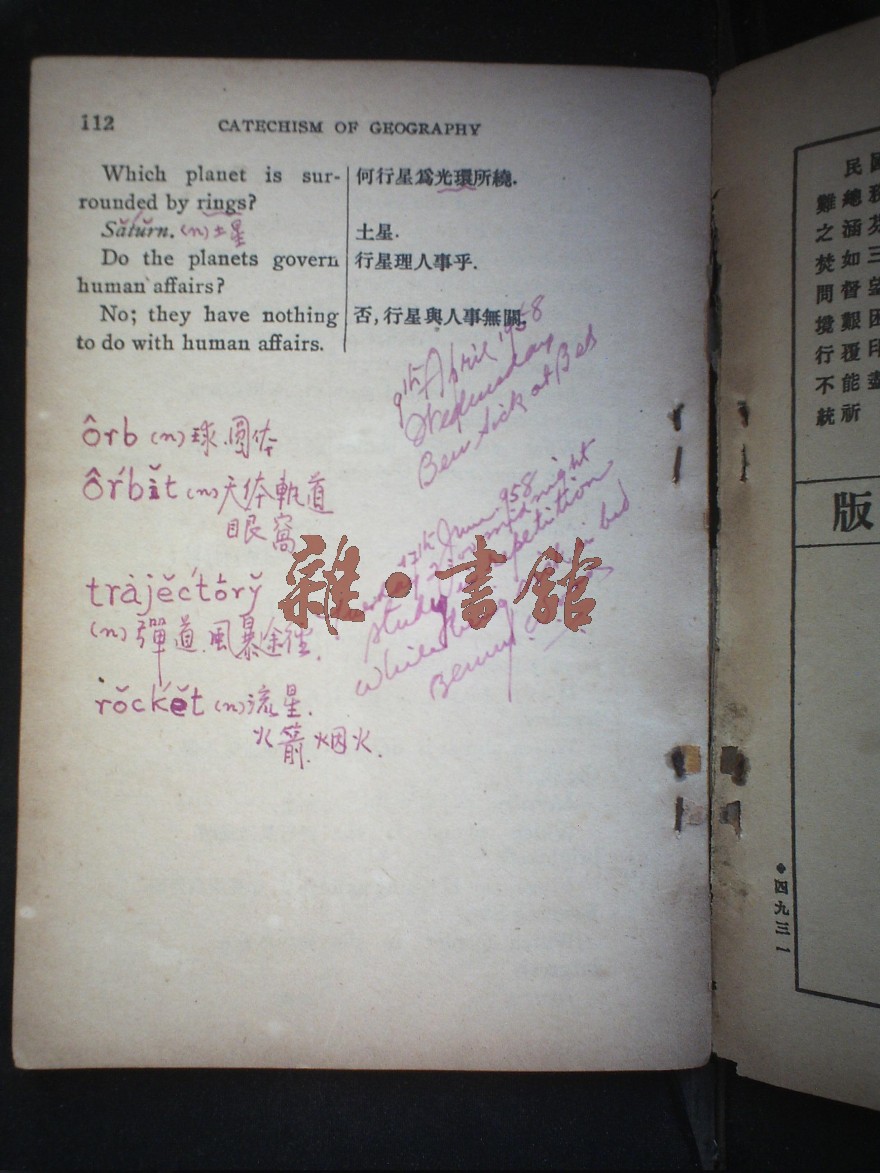 112 CATECHISM OF GEOGRAPHY
Which planet is sur-
rounded by rings?
Saturn. (n) 土星
Do the planets govern
human affairs?
No; they have nothing
to do with human affairs.
何行星爲光環所繞.
土星.
行星理人事乎.
否, 行星與人事無關.
9th April 1958
Wednesday
Ben sick at Bed
ôrb (n) 球.圓体
Ôrbit (n) 天体軌道
眼窩
trajectory
(n) 彈道.風暴途徑.
rocket (n) 流星.
火箭.烟火.
17th June 958
midnight
study competition
while bed
雜·書館
民總涵如督艱覆能祈
難之焚間境行不統
版
四九三一